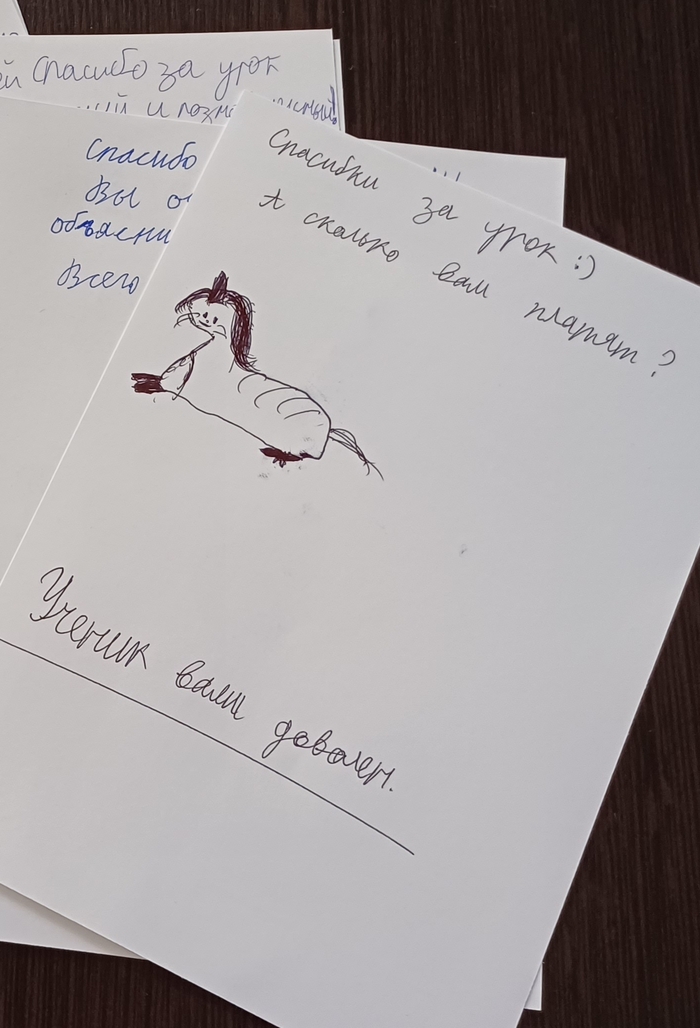 Спасибо за урок
Спасибо
Вы
объясни
Всего
Спасибки за урок :)
А сколько вам платят?
Ученик вами доволен.